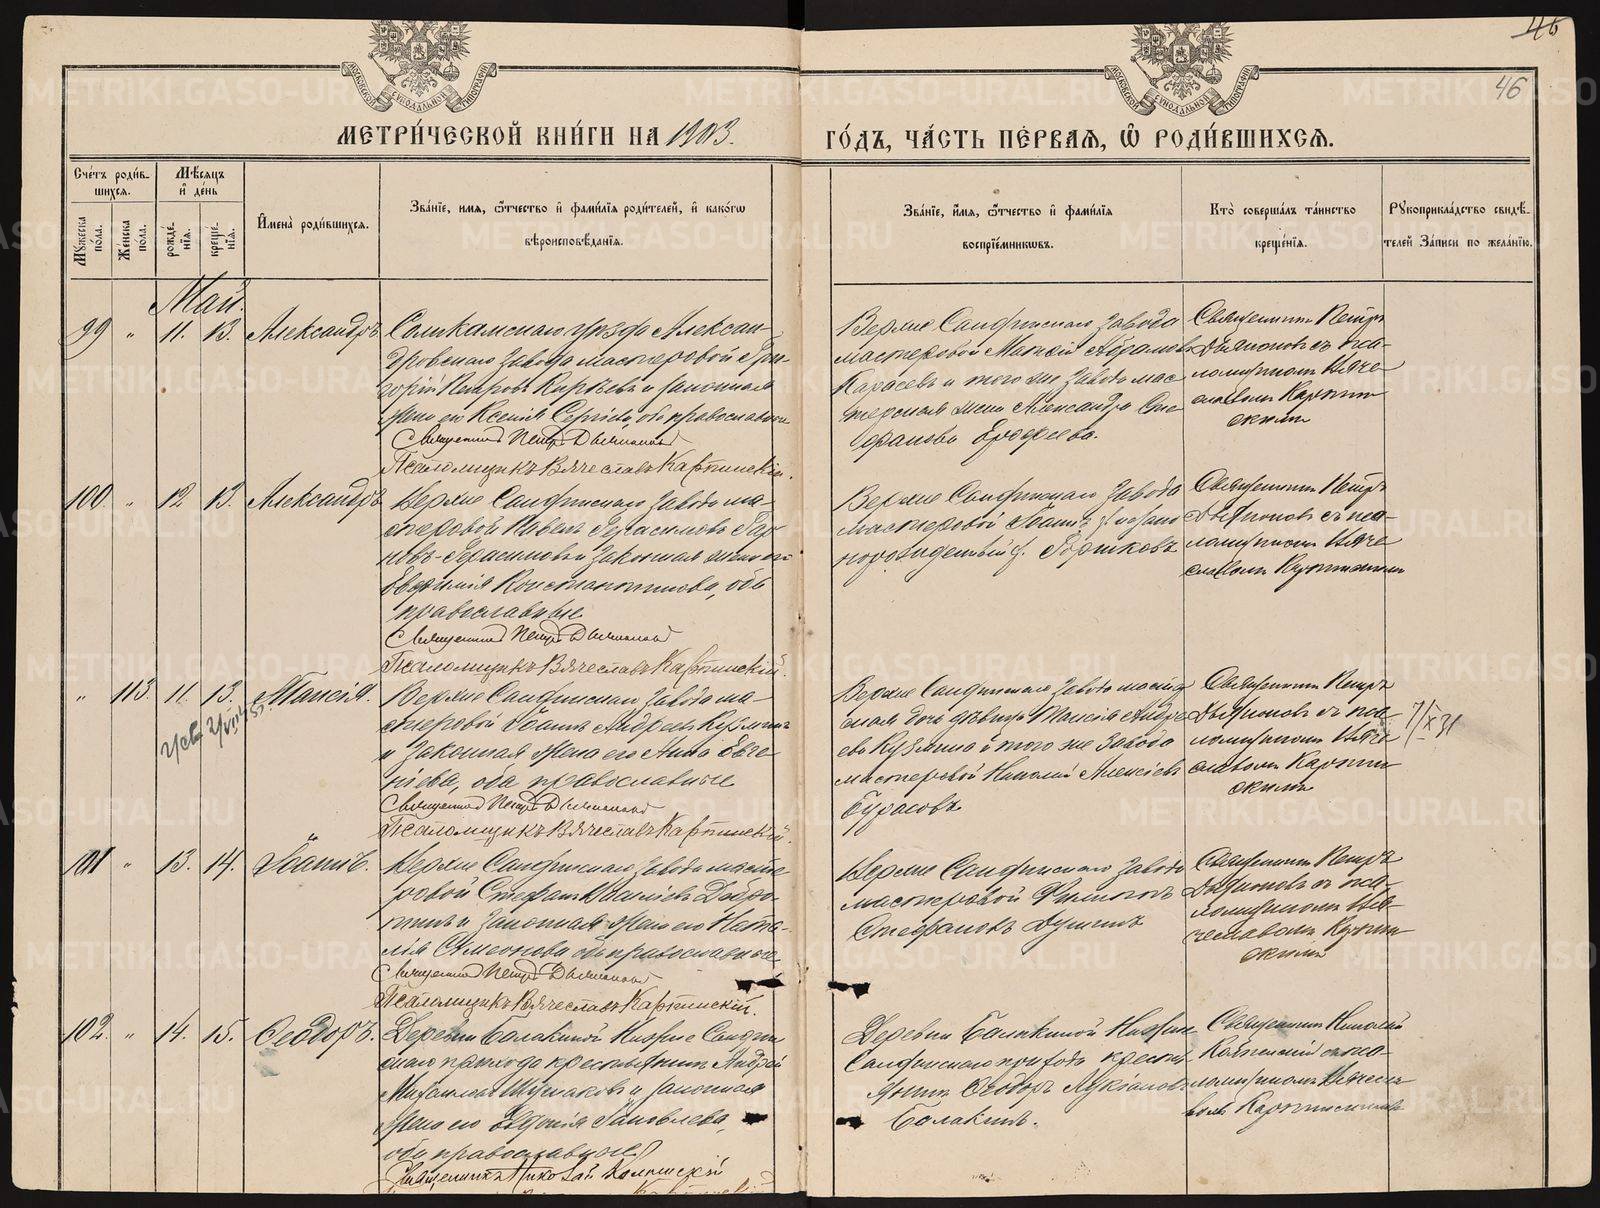 46
46
МОСКОВСКОЙ СѴНОДАЛЬНОЙ ТИПОГРАФІИ
МОСКОВСКОЙ СѴНОДАЛЬНОЙ ТИПОГРАФІИ
МЕТРИ́ЧЕСКОЙ КНИ́ГИ НА 1903.
ГО́ДЪ, ЧА́СТЬ ПЕ́РВАѦ, Ѽ РОДИ́ВШИХСѦ.
Сче́тъ роди́в-
шихся.
Мѣ́сяцъ
и̂ де́нь
Мꙋ́жеска
по́ла.
Же́нска
по́ла.
рожде́-
нїя.
креще́-
нїя.
И̂мена̀ роди́вшихся.
Зва́нїе, имя, ѻ҆́тчество и̂ фами́лїя роди́телей, и̂ како́гѡ
вѣроисповѣ́данїя.
Зва́нїе, и̂́мя, ѻ҆́тчество и̂ фами́лїя
воспрїе́мниковъ.
Кто̀ соверша́лъ та́инство
креще́нїя.
Рꙋкоприкла́дство свидѣ́-
телей за́писи по жела́нїю.
Май.
99 „ 11. 13. Александръ
Соликамскаго уѣзда Алексан-
дровскаго завода мастеровой Гри-
горій Петровъ Киряевъ и законная
жена его Ксенія Сергіева, оба православные
Священникъ Петръ Дьяконовъ
Псаломщикъ Вячеславъ Карпинскій.
Верхне Салдинскаго завода
мастеровой Матвей Абрамовъ
Карасевъ и того же завода мас
терская жена Александра Сте
фанова Ерофеева.
Священникъ Петръ
Дьяконовъ съ пса-
ломщикомъ Вяче
славомъ Карпин
скимъ
100. „ 12 13. Александръ
Верхне Салдинскаго завода ма-
стеровой Павелъ Герасимовъ
и законная жена его
Евфимія Константинова, оба
православные
Священникъ Петръ Дьяконовъ
Псаломщикъ Вячеславъ Карпинскій.
Верхне Салдинскаго завода
мастеровой Іоаннъ
Священникъ Петръ
Дьяконовъ съ пса-
ломщикомъ Вяче
славомъ Карпинскимъ
„ 113. 11. 13. Таисія.
Верхне Салдинскаго завода ма-
стеровой Іоаннъ Андреевъ Кузминъ
и законная жена его Анна Евге
ніева, оба православные
Священникъ Петръ Дьяконовъ
Псаломщикъ Вячеславъ Карпинскій.
Верхне Салдинскаго завода мастер
ская дочь дѣвица Таисія Андре
ева Кузмина и того же завода
мастеровой Николай Алексѣевъ
Бурасовъ
Священникъ Петръ
Дьяконовъ съ пса
ломщикомъ Вяче
славомъ Карпин
скимъ
101 „ 13. 14. Іоаннъ.
Верхне Салдинскаго завода масте
ровой Стефанъ Василіевъ Добро-
тинъ и законная жена его Ната-
лія Симеонова оба православные
Священникъ Петръ Дьяконовъ
Псаломщикъ Вячеславъ Карпинскій.
Верхне Салдинскаго завода
мастеровой Филиппъ
Стефановъ Душинъ
Священникъ Петръ
Дьяконовъ съ пса-
ломщикомъ Вя-
чеславомъ Карпин
скимъ
102. „ 14. 15. Ѳеодоръ.
Деревни Балакиной Нижне Салдин
скаго прихода крестьянинъ Андрей
Михаиловъ и законная
жена его Евдокія Яковлева,
оба православные
Священникъ Николай
Деревни Балакиной Нижне
Салдинскаго прихода крестья-
янинъ Ѳеодоръ Лукіановъ
Балакинъ.
Священникъ Николай
съ пса-
ломщикомъ Вячесла
вомъ Карпинскимъ
METRIKI.GASO-URAL.RU